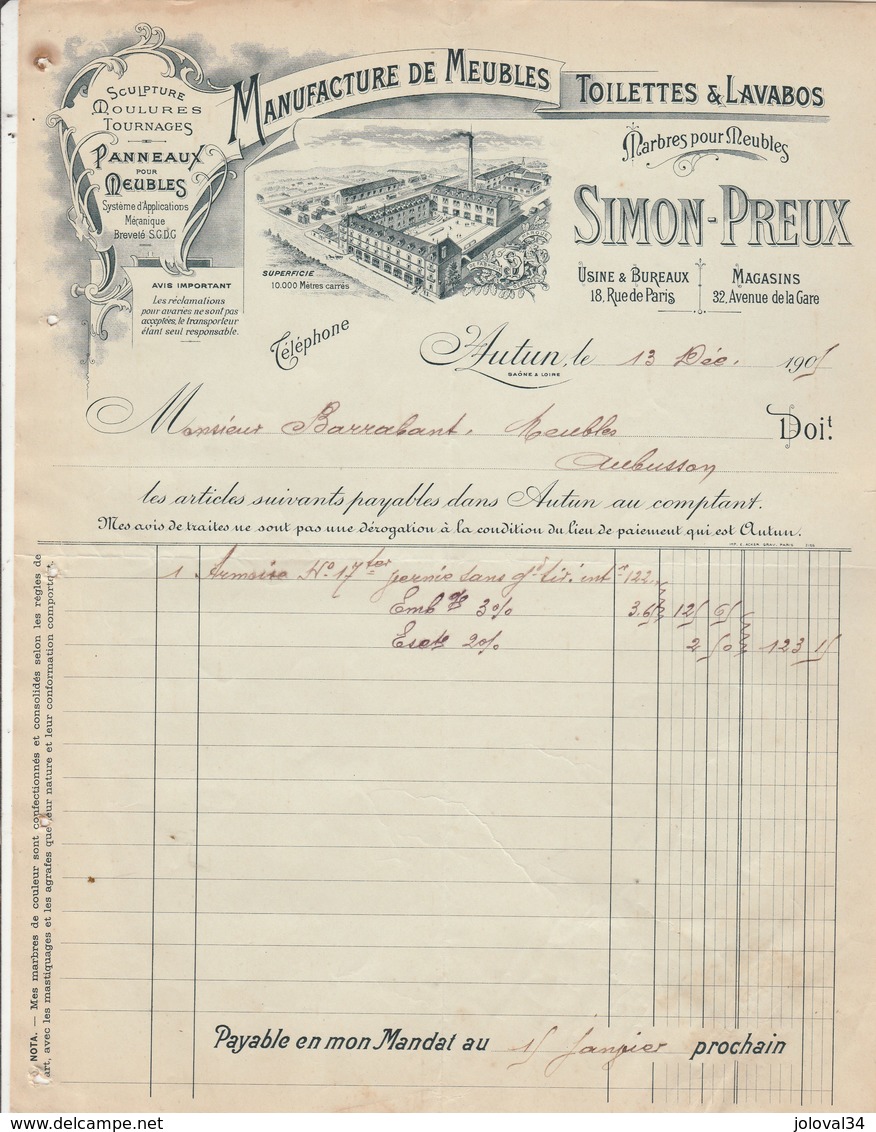 SCULPTURE
MOULURES
TOURNAGES
PANNEAUX
POUR
MEUBLES
Système d'Applications
Mécanique
Breveté S.G.D.G
AVIS IMPORTANT
Les réclamations
pour avaries ne sont pas
acceptées, le transporteur
étant seul responsable.
MANUFACTURE DE MEUBLES
TOILETTES & LAVABOS
Marbres pour Meubles
SIMON-PREUX
USINE & BUREAUX
18, Rue de Paris
MAGASINS
32, Avenue de la Gare
SUPERFICIE
10.000 Mètres carrés
Téléphone
Autun, le 13 Déc. 1905
SAÔNE & LOIRE
Monsieur Barrabant. Meubles Doit.
Aubusson
les articles suivants payables dans Autun au comptant.
Mes avis de traites ne sont pas une dérogation à la condition du lieu de paiement qui est Autun.
1 Armoire No 17 ter vernie sans gd tir. intr 122
Embge 3% 3.65 125 65
Escte 2% 2 50 123 15
Payable en mon Mandat au 15 Janvier prochain
NOTA. — Mes marbres de couleur sont confectionnés et consolidés selon les règles de
art, avec les mastiquages et les agrafes que leur nature et leur conformation comportent.
delcampe.net
joloval34